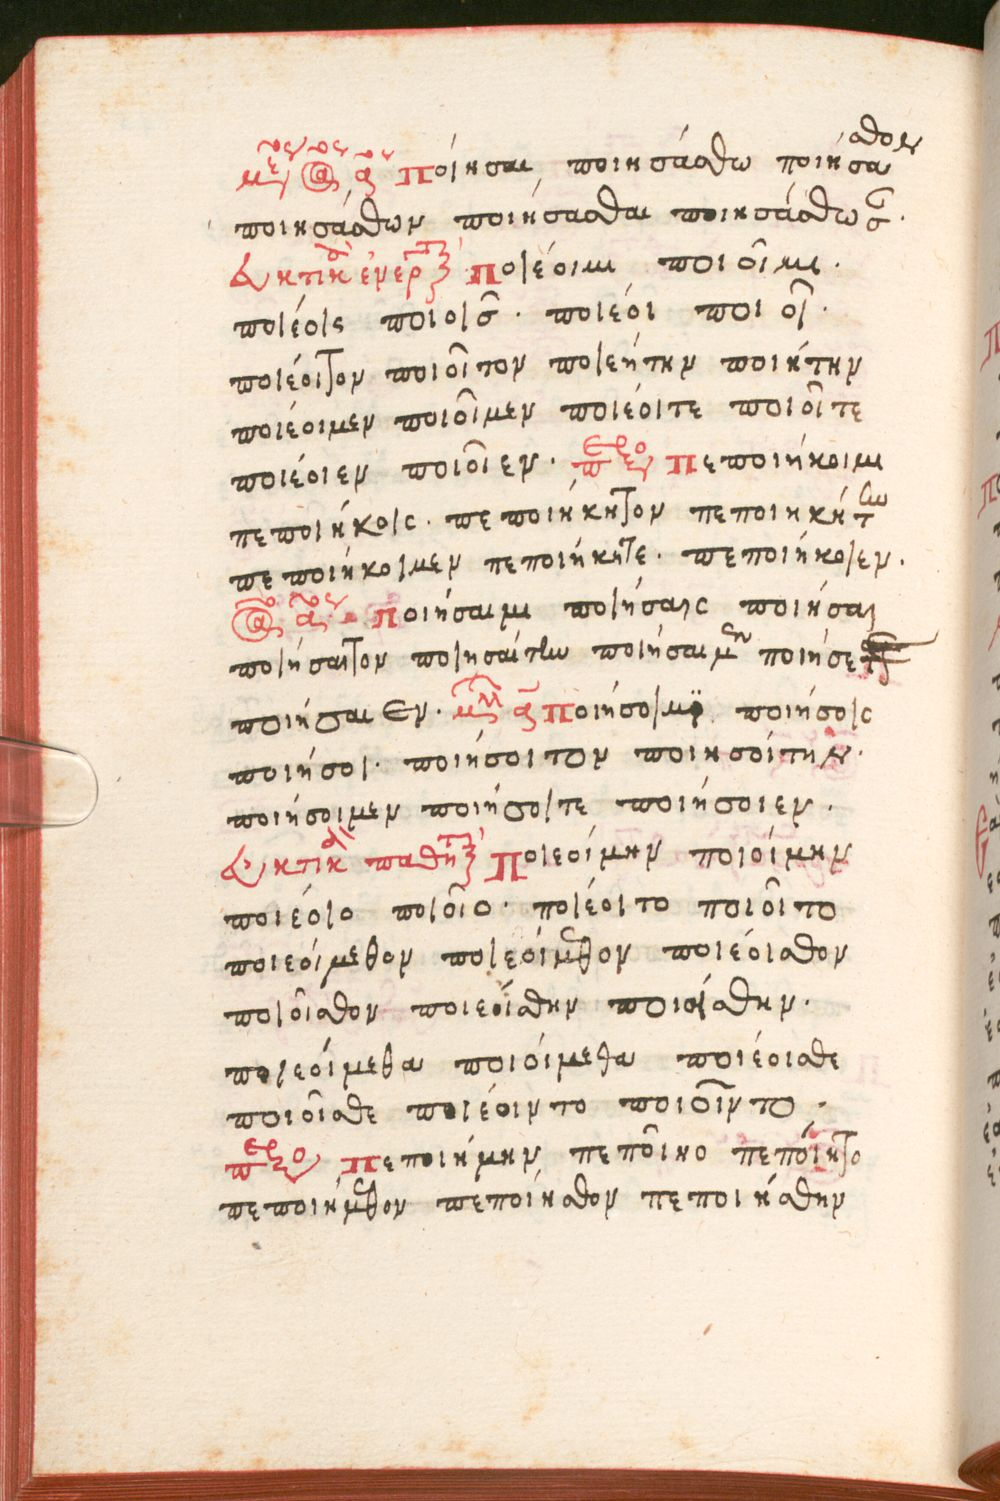 μέσου ἀορίστου αου ποίησαι, ποιησάσθω ποιήσασθον
ποιησάσθων ποιήσασθαι ποιησάσθωσ.
εὐκτικῆς ἐνεργ ποιέοιμι ποιοῖμι.
ποιέοις ποιοῖς. ποιέοι ποιοῖ.
ποιέοιτον ποιοῖτον ποιεήτην ποιήτην
ποιέοιμεν ποιοῖμεν ποιέοιτε ποιοῖτε
ποιέοιεν ποιοῖεν. πεποιήκοιμι
πεποιήκοις. πεποιήκητον πεποιηκήτω
πεποιήκοιμεν πεποιήκητε. πεποιήκοιεν.
ἀορίστου αου ποιήσαιμι ποιήσαις ποιήσαι
ποιήσαιτον ποιησαίτω ποιήσαιμεν ποιήσε
ποιήσαιεν. μέλλ α ποιήσοιμι ποιήσοις
ποιήσοι. ποιήσοιτον ποιησοίτην.
ποιήσοιμεν ποιήσοιτε ποιήσοιεν.
εὐκτικ παθητ ποιεοίμην ποιοίμην
ποιέοιο ποιοῖο. ποιέοιτο ποιοῖτο
ποιεοίμεθον ποιεοίμεθον ποιέοισθον
ποιοῖσθον ποιεοίσθην ποιοίσθην.
ποιεοίμεθα ποιοίμεθα ποιέοισθε
ποιοῖσθε ποιέοιντο ποιοῖντο.
πεποιήμην πεποῖηο πεποίητο
πεποιήμεθον πεποίησθον πεποιήσθην